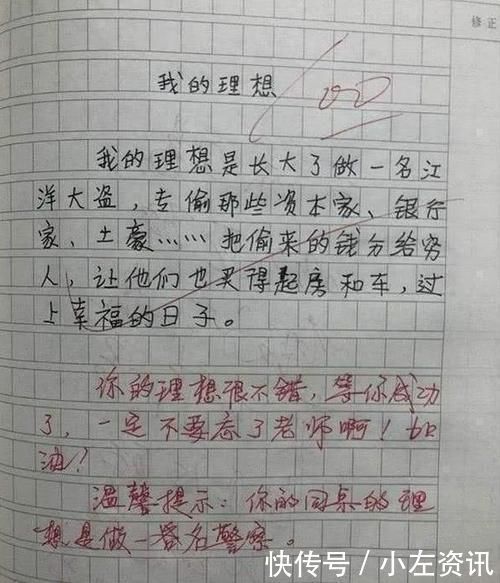 修正
我的理想
我的理想是长大了做一名江
洋大盗，专偷那些资本家、银行
家、土豪……把偷来的钱分给穷
人，让他们也买得起房和车，过
上幸福的日子。
你的理想很不错，等你成功
了，一定不要忘了老师啊！加
油！
温馨提示：你的同桌的理
想是做一名警察。
快传号 / 小左资讯